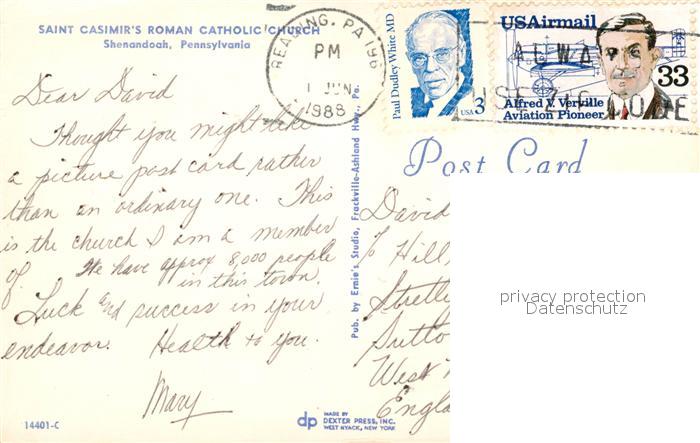 SAINT CASIMIR'S ROMAN CATHOLIC CHURCH
Shenandoah, Pennsylvania
READING, PA 196
PM
1 JUN
1988
Paul Dudley White MD
USA 3
USAirmail
33
Alfred V. Verville
Aviation Pioneer
ALWAYS
USE ZIP CODE
Dear David
Thought you might like
a picture post card rather
than an ordinary one. This
is the church I am a member
of. We have approx 8,000 people
in this town.
Luck and success in your
endeavor. Health to you.
Mary
14401-C
Pub. by Ernie's Studio, Frackville-Ashland Hwy., Pa.
dp MADE BY
DEXTER PRESS, INC.
WEST NYACK, NEW YORK
Post Card
David
% Hill,
Stretl
Sutto
West
Engla
privacy protection
Datenschutz